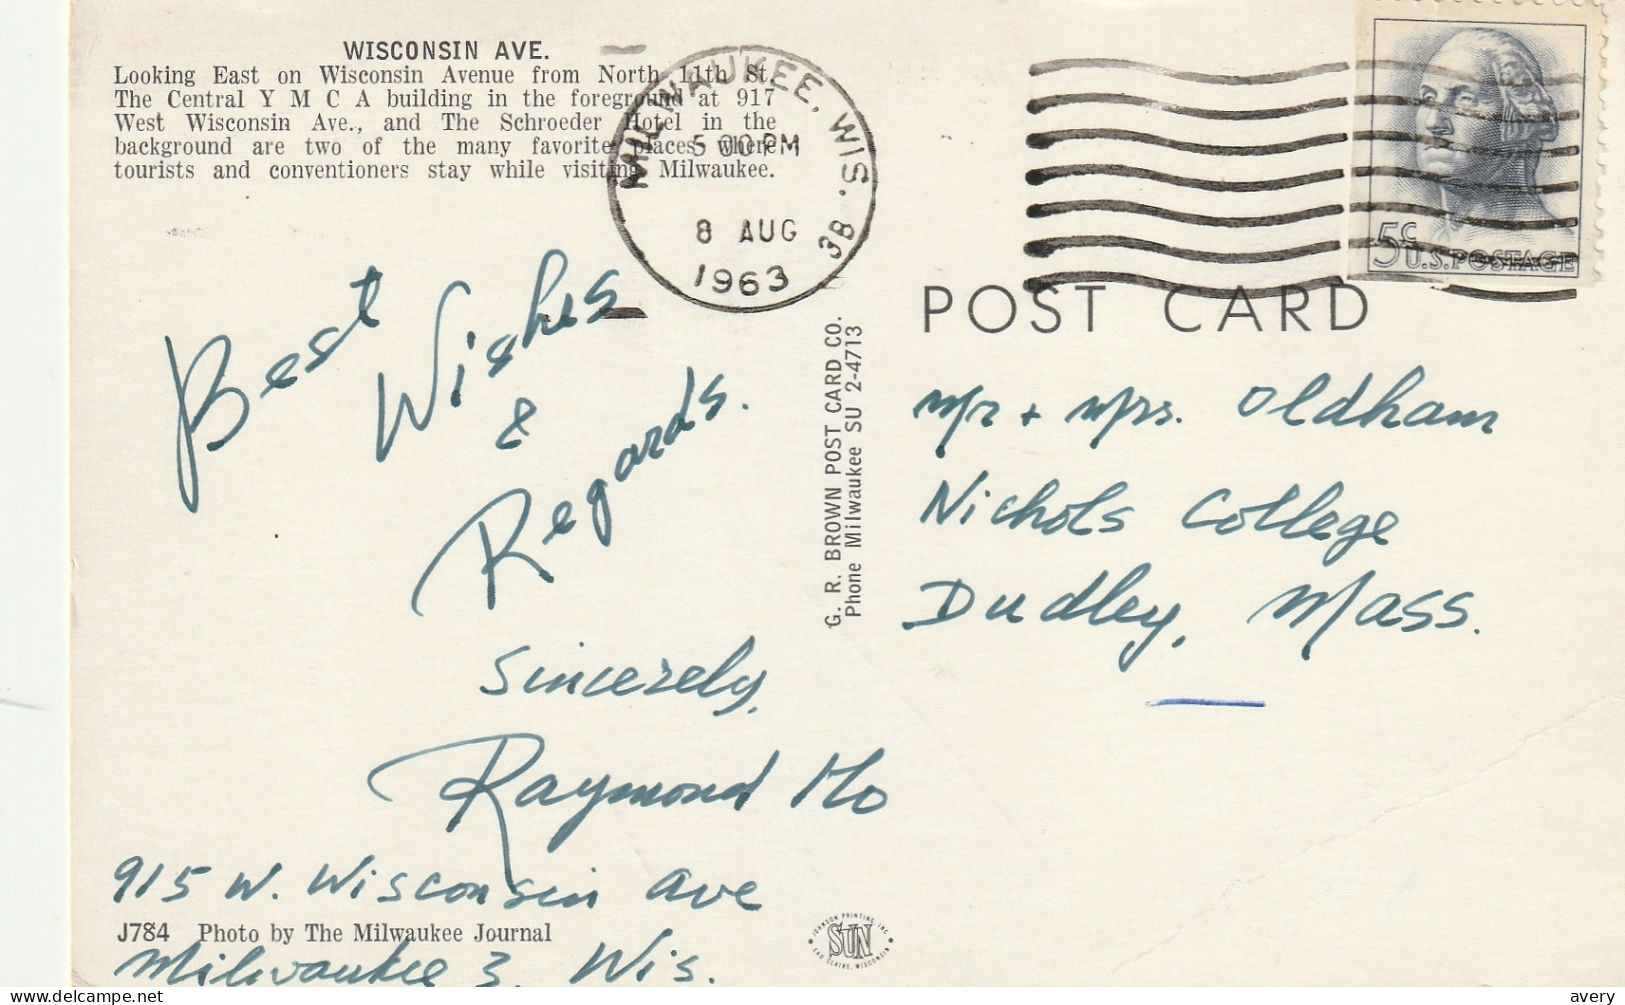 WISCONSIN AVE.
Looking East on Wisconsin Avenue from North 11th St.
The Central Y M C A building in the foreground at 917
West Wisconsin Ave., and The Schroeder Hotel in the
background are two of the many favorite places where
tourists and conventioners stay while visiting Milwaukee.
MILWAUKEE, WIS. 3B
5 00 PM
8 AUG
1963
5c
U.S. POSTAGE
POST CARD
Best
Wishes
&
Regards.
Sincerely,
Raymond Ho
915 W. Wisconsin Ave
Milwaukee 3, Wis.
J784 Photo by The Milwaukee Journal
G. R. BROWN POST CARD CO.
Phone Milwaukee SU 2-4713
Mr + Mrs. Oldham
Nichols College
Dudley, Mass.
JOHNSON PRINTING INC
SUN
EAU CLAIRE, WISCONSIN
delcampe.net
avery